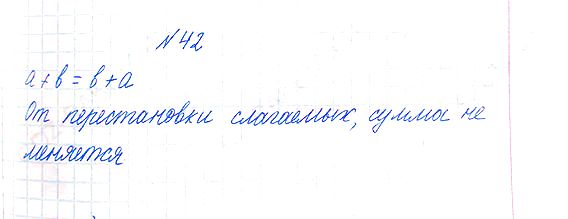 №42
а+в=в+а
От перестановки слагаемых, сумма не
меняется